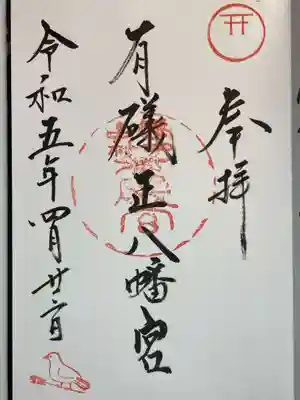 奉拝
有礒正八幡宮
令和五年四月廿六日